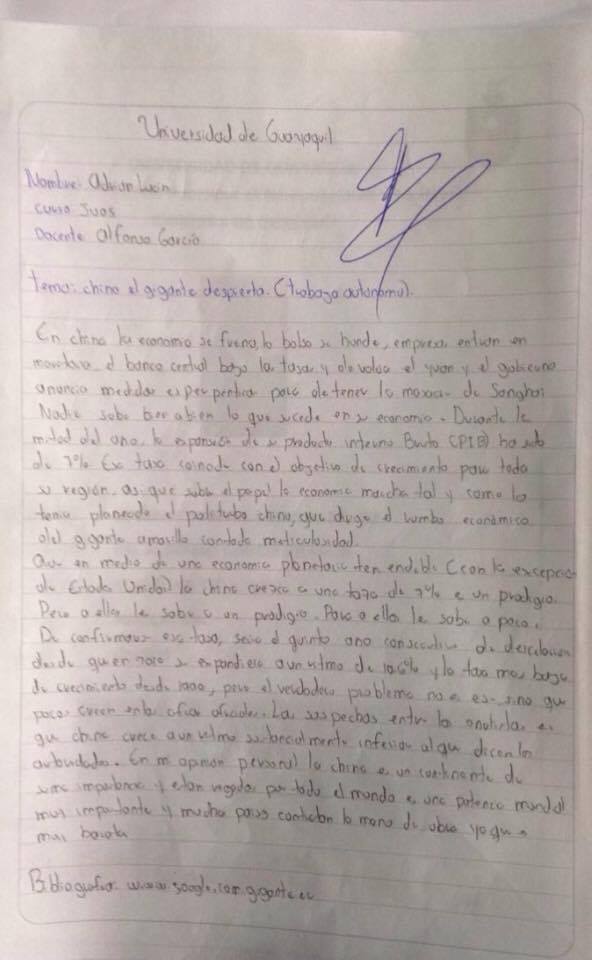 Universidad de Guayaquil
Nombre: Adrian
curso Juos
Docente Alfonso García
tema: china el gigante despierta. (trabajo autonomo).
En china la economia se frena, la bolsa se hunde, empresas entran en
el banco central baja la tasa y el yuan y el gobierno
anuncia medidas para la de
Nadie sabe bien lo que sucede en su economia. Durante la
mitad del ano, la expansion de su producto interno Bruto (PIB) ha sido
de 7% Esa taxa con el objetivo de crecimiento para toda
su región, as que sobre el papel la economia marcha tal y como lo
tenia planeado el politburo chino, que dirige el rumbo económico
del gigante amarillo con toda meticulosidad.
en medio de una economia planetaria (con la excepcion
de Estado Unidos) la china crezca a una taza de 7% e un prodigio.
Pero a ellos le sabe a un prodigio. Pero a ellos le sabe a poco.
De confirmarse esa tasa, seria el quinto ano consecutivo de
desde que en 2010 se expandiera a un ritmo de 10,6% y la tasa mas baja
de crecimiento desde 1990, pero el verdadero problema no es ese sino que
pocos creen en las cifras oficiales. Las sospechas entre los analistas es
que china crece a un ritmo sustancialmente inferior al que dicen las
autoridades. En mi opinion personal la china e un continente de
suma importancia y estan regados por todo el mundo e una potencia mundial
muy importante y mucho paises contratan la mano de obra ya que e
mas barata
Bibliografia: www.google.com.gigante.ec